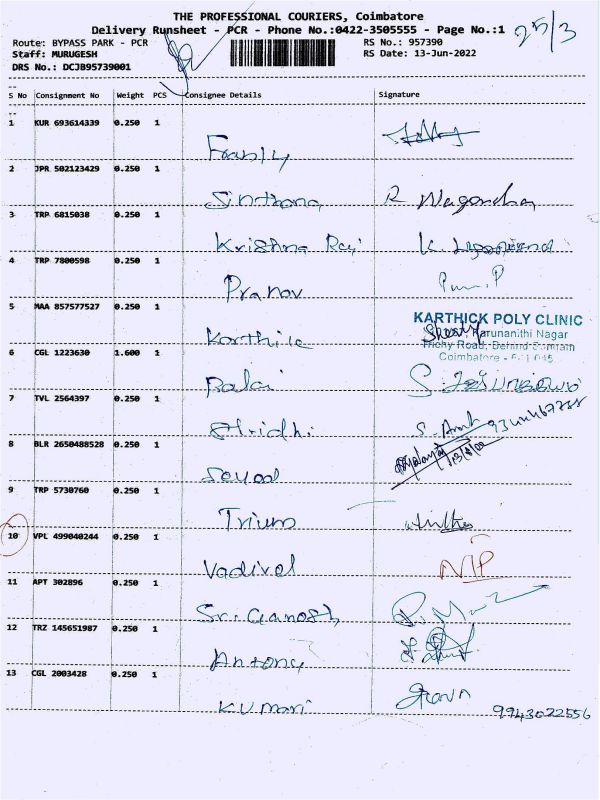 THE PROFESSIONAL COURIERS, Coimbatore
Delivery Runsheet - PCR - Phone No.:0422-3505555 - Page No.:1
25/3
Route: BYPASS PARK - PCR
RS No.: 957390
Staff: MURUGESH
RS Date: 13-Jun-2022
DRS No.: DCJB95739001
S No Consignment No Weight PCS Consignee Details Signature
1 KUR 693614339 0.250 1
2 JPR 502123429 0.250 1
Sinthana R
3 TRP 6815038 0.250 1
Krishna Raj K
4 TRP 7800598 0.250 1
Pranav P
5 MAA 857577527 0.250 1
KARTHICK POLY CLINIC
Karunanithi Nagar
Trichy Road, Behind
Coimbatore - 641 045
Karthik
6 CGL 1223630 1.600 1
Balaji S.
7 TVL 2564397 0.250 1
Shridhi S.
8 BLR 2650488528 0.250 1
9 TRP 5730760 0.250 1
Trium
10 VPL 499040244 0.250 1
Vadivel NIP
11 APT 302896 0.250 1
Sri Ganesh
12 TRZ 145651987 0.250 1
Antony
13 CGL 2003428 0.250 1
Kumari
9943022556